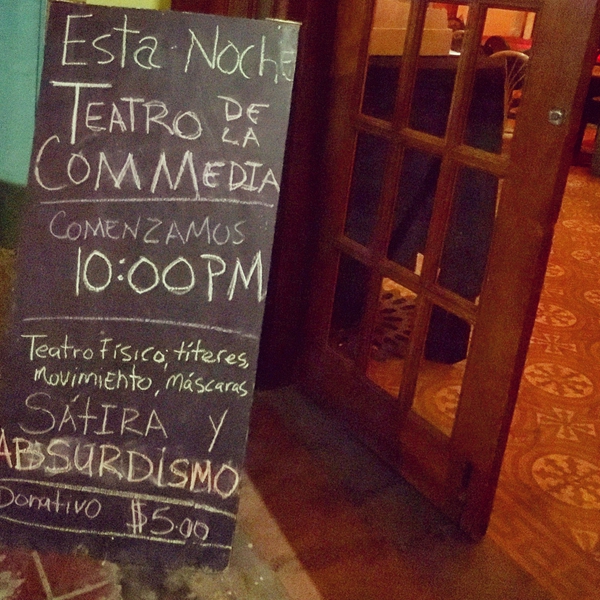 Esta Noche
TEATRO DE LA
COMMEDIA
COMENZAMOS
10:00PM
Teatro Físico, títeres,
movimiento, máscaras
SÁTIRA Y
ABSURDISMO
Donativo $5.00